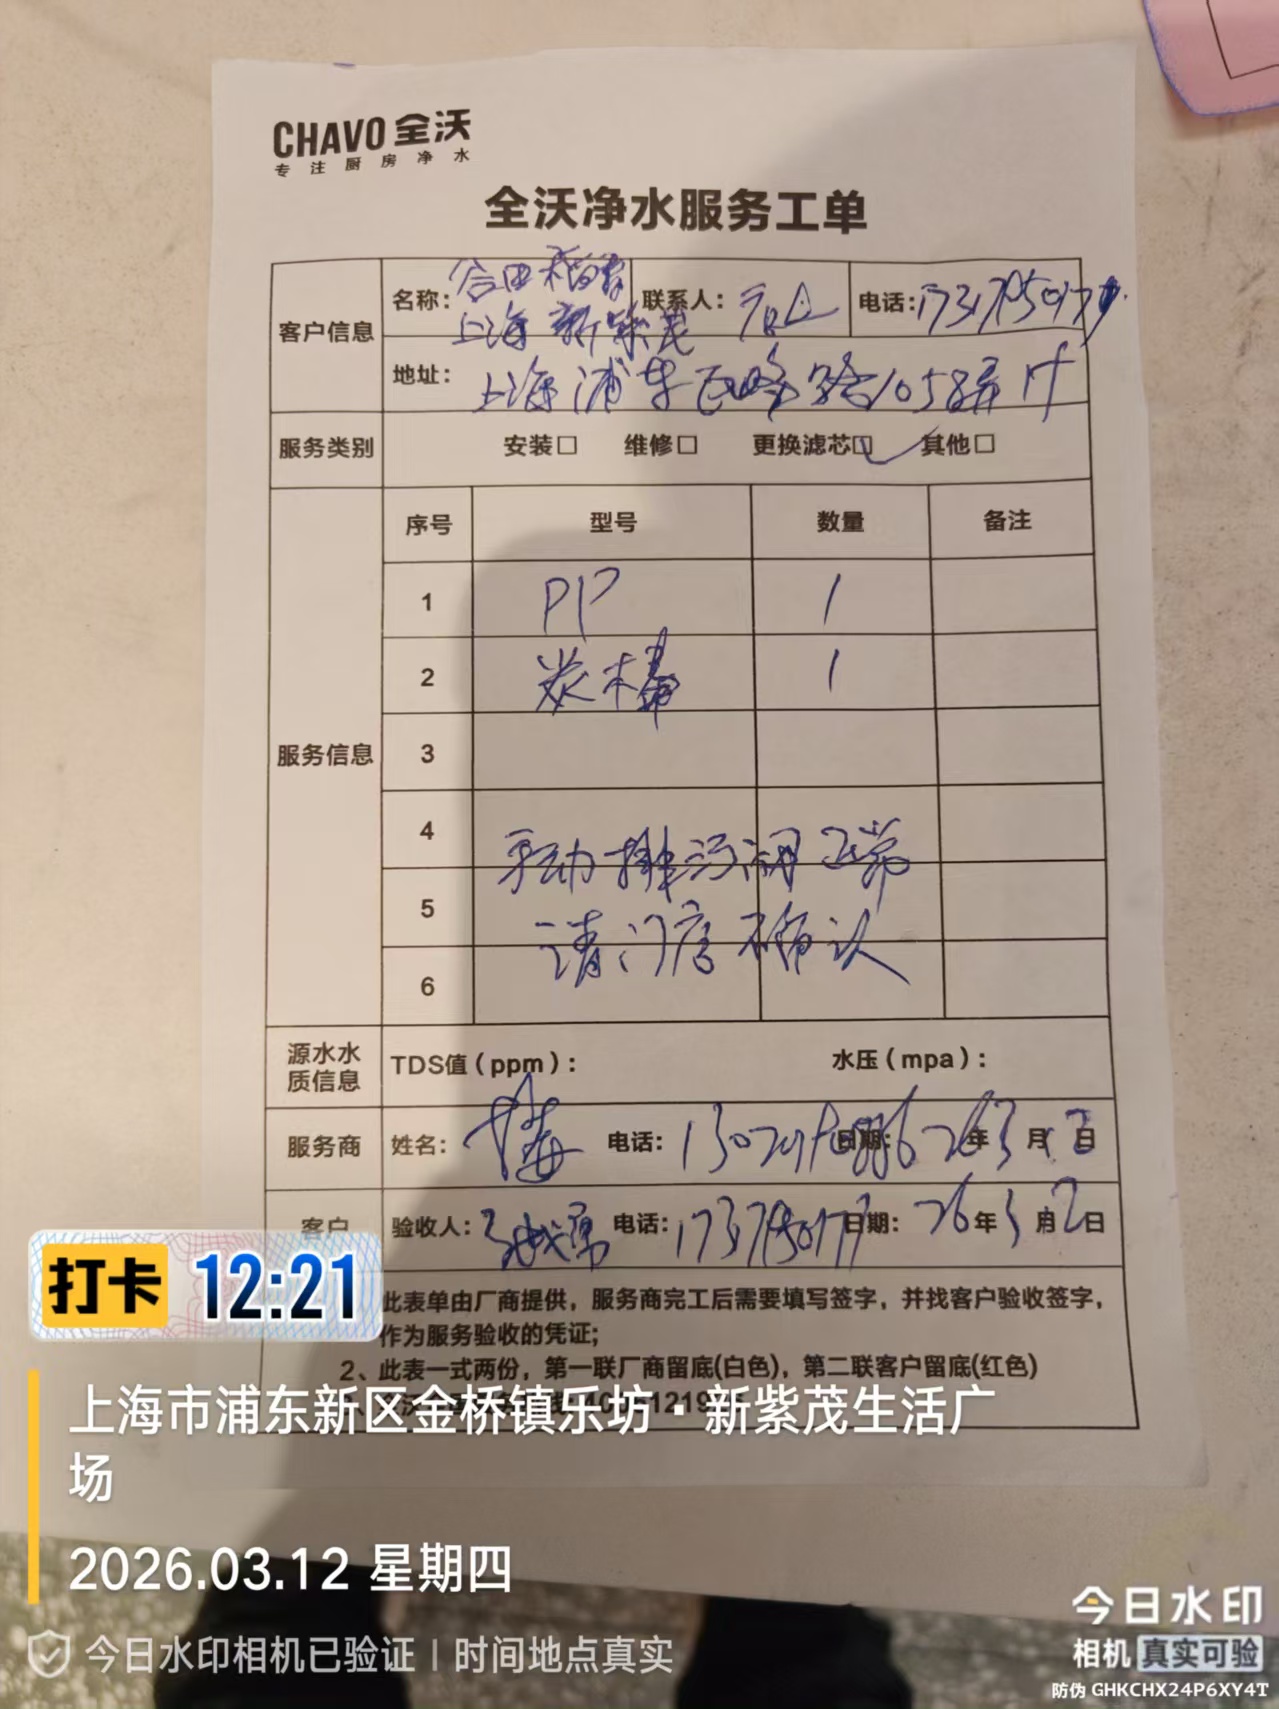 CHAVO 全沃
专注厨房净水
全沃净水服务工单
客户信息
名称: 谷田稻香
上海新紫茂
联系人:
电话:
地址: 上海浦东 路1058弄
服务类别 安装□ 维修□ 更换滤芯☑ 其他□
服务信息 序号 型号 数量 备注
1 PP 1
2 炭棒 1
3
4
手动排污阀正常
5
请门店确认
6
源水水质信息 TDS值(ppm): 水压(mpa):
服务商 姓名: 电话: 日期: 26年3月 日
客户 验收人: 电话: 日期: 26年3月 日
此表单由厂商提供，服务商完工后需要填写签字，并找客户验收签字，
作为服务验收的凭证;
2、此表一式两份，第一联厂商留底(白色)，第二联客户留底(红色)
打卡 12:21
上海市浦东新区金桥镇乐坊·新紫茂生活广
场
2026.03.12 星期四
今日水印相机已验证 | 时间地点真实
今日水印
相机 真实可验
防伪 GHKCHX24P6XY4T